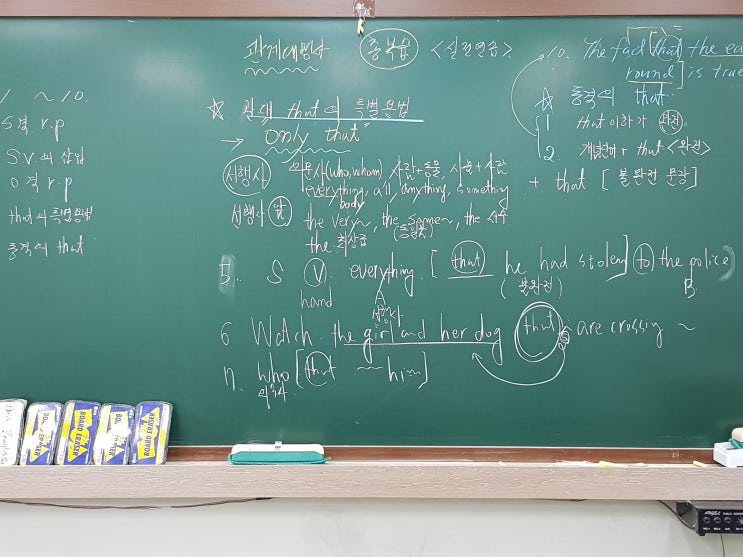 관계대명사 총복습 <실전연습>
1 ~ 10.
S격 r.p
SV의 삽입
O격 r.p
that의 특별용법
동격의 that
☆ 관대 that의 특별용법
→ "only that"
선행사 의문사(who, whom) 사람+동물, 사물+사람
everything, all, anything, something
body
+ that [불완전 문장]
선행사 앞 the very~, the same~, the 서수
(동일한)
the 최상급
5. S V everything [that he had stolen] to the police
hand A (불완전) B
선행사
6 Watch the girl and her dog that are crossing ~
7. who [that ~ him]
의문사
10. The fact that the ea
round] is true
☆ 동격의 that
1 that 이하가 완전
2. 개념언어 + that <완전>
BOARD ERASER
BOARD ERASER
BOARD ERASER
BOARD ERASER